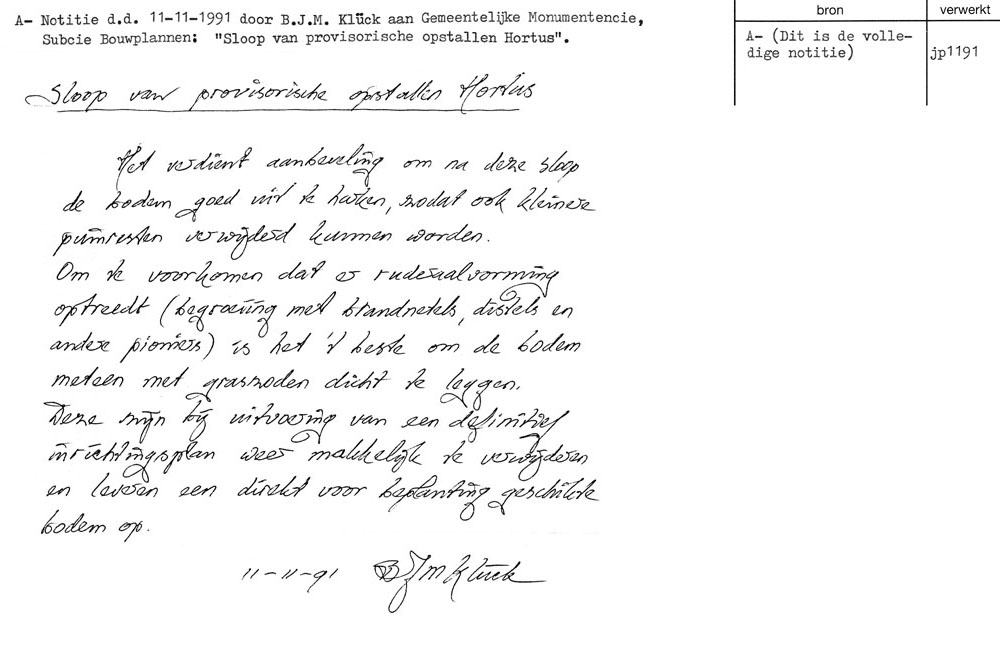 A- Notitie d.d. 11-11-1991 door B.J.M. Klück aan Gemeentelijke Monumentencie,
Subcie Bouwplannen: "Sloop van provisorische opstallen Hortus".
bron
verwerkt
A- (Dit is de volle-
dige notitie)
jp1191
Sloop van provisorische opstallen Hortus
Het verdient aanbeveling om na deze sloop
de bodem goed uit te harken, zodat ook kleinere
puinresten verwijderd kunnen worden.
Om te voorkomen dat er ruderaalvorming
optreedt (begroeiing met brandnetels, distels en
andere pioniers) is het 't beste om de bodem
meteen met graszoden dicht te leggen.
Deze zijn bij uitvoering van een definitief
inrichtingsplan weer makkelijk te verwijderen
en leveren een direkt voor beplanting geschikte
bodem op.
11-11-91 BJM Klück